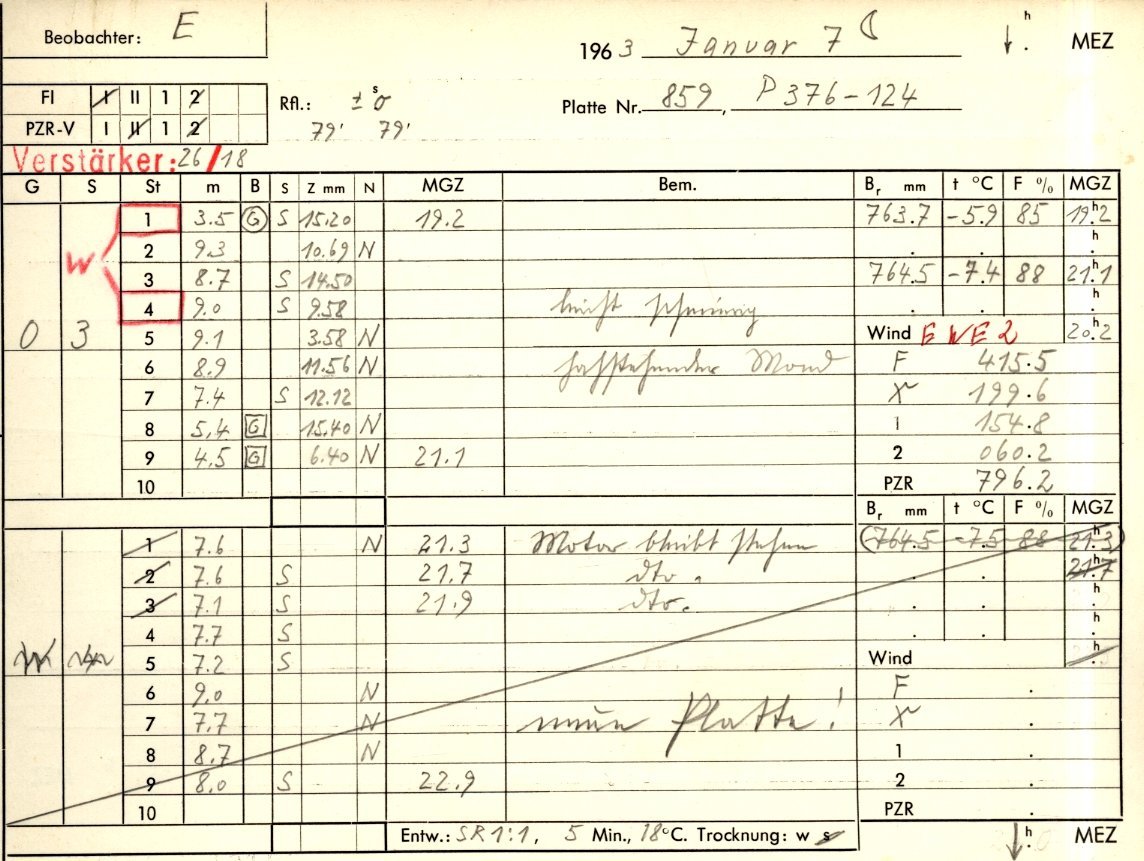 Beobachter: E
1963 Januar 7 ☾
h . MEZ
FI I II 1 2
PZR-V I II 1 2
Rfl.: ± s σ
79' 79'
Platte Nr. 859, P 376-124
Verstärker: 26/18
G S St m B S Z mm N MGZ Bem. Br mm t °C F % MGZ
1 3.5 G S 15.20 19.2 763.7 -5.9 85 19h2
2 9.3 10.69 N . . h .
W 3 8.7 S 14.50 764.5 -7.4 88 21h1
4 9.0 S 9.58 leicht . . h .
0 3 5 9.1 3.58 N Wind E WE 2 20h2
6 8.9 11.56 N Mond F 415.5
7 7.4 S 12.12 X 199.6
8 5.4 G 15.40 N 1 154.8
9 4.5 G 6.40 N 21.1 2 060.2
10 PZR 796.2
Br mm t °C F % MGZ
1 7.6 N 21.3 Motor bleibt stehen (764.5 -7.5 88 21h3)
2 7.6 S 21.7 dto. . . 21h7
3 7.1 S 21.9 dto. . . h .
4 7.7 S . . h .
5 7.2 S Wind h
6 9.0 N F .
7 7.7 N neue Platte! X .
8 8.7 N 1 .
9 8.0 S 22.9 2 .
10 PZR .
Entw.: SR 1:1, 5 Min., 18°C. Trocknung: w s
h MEZ